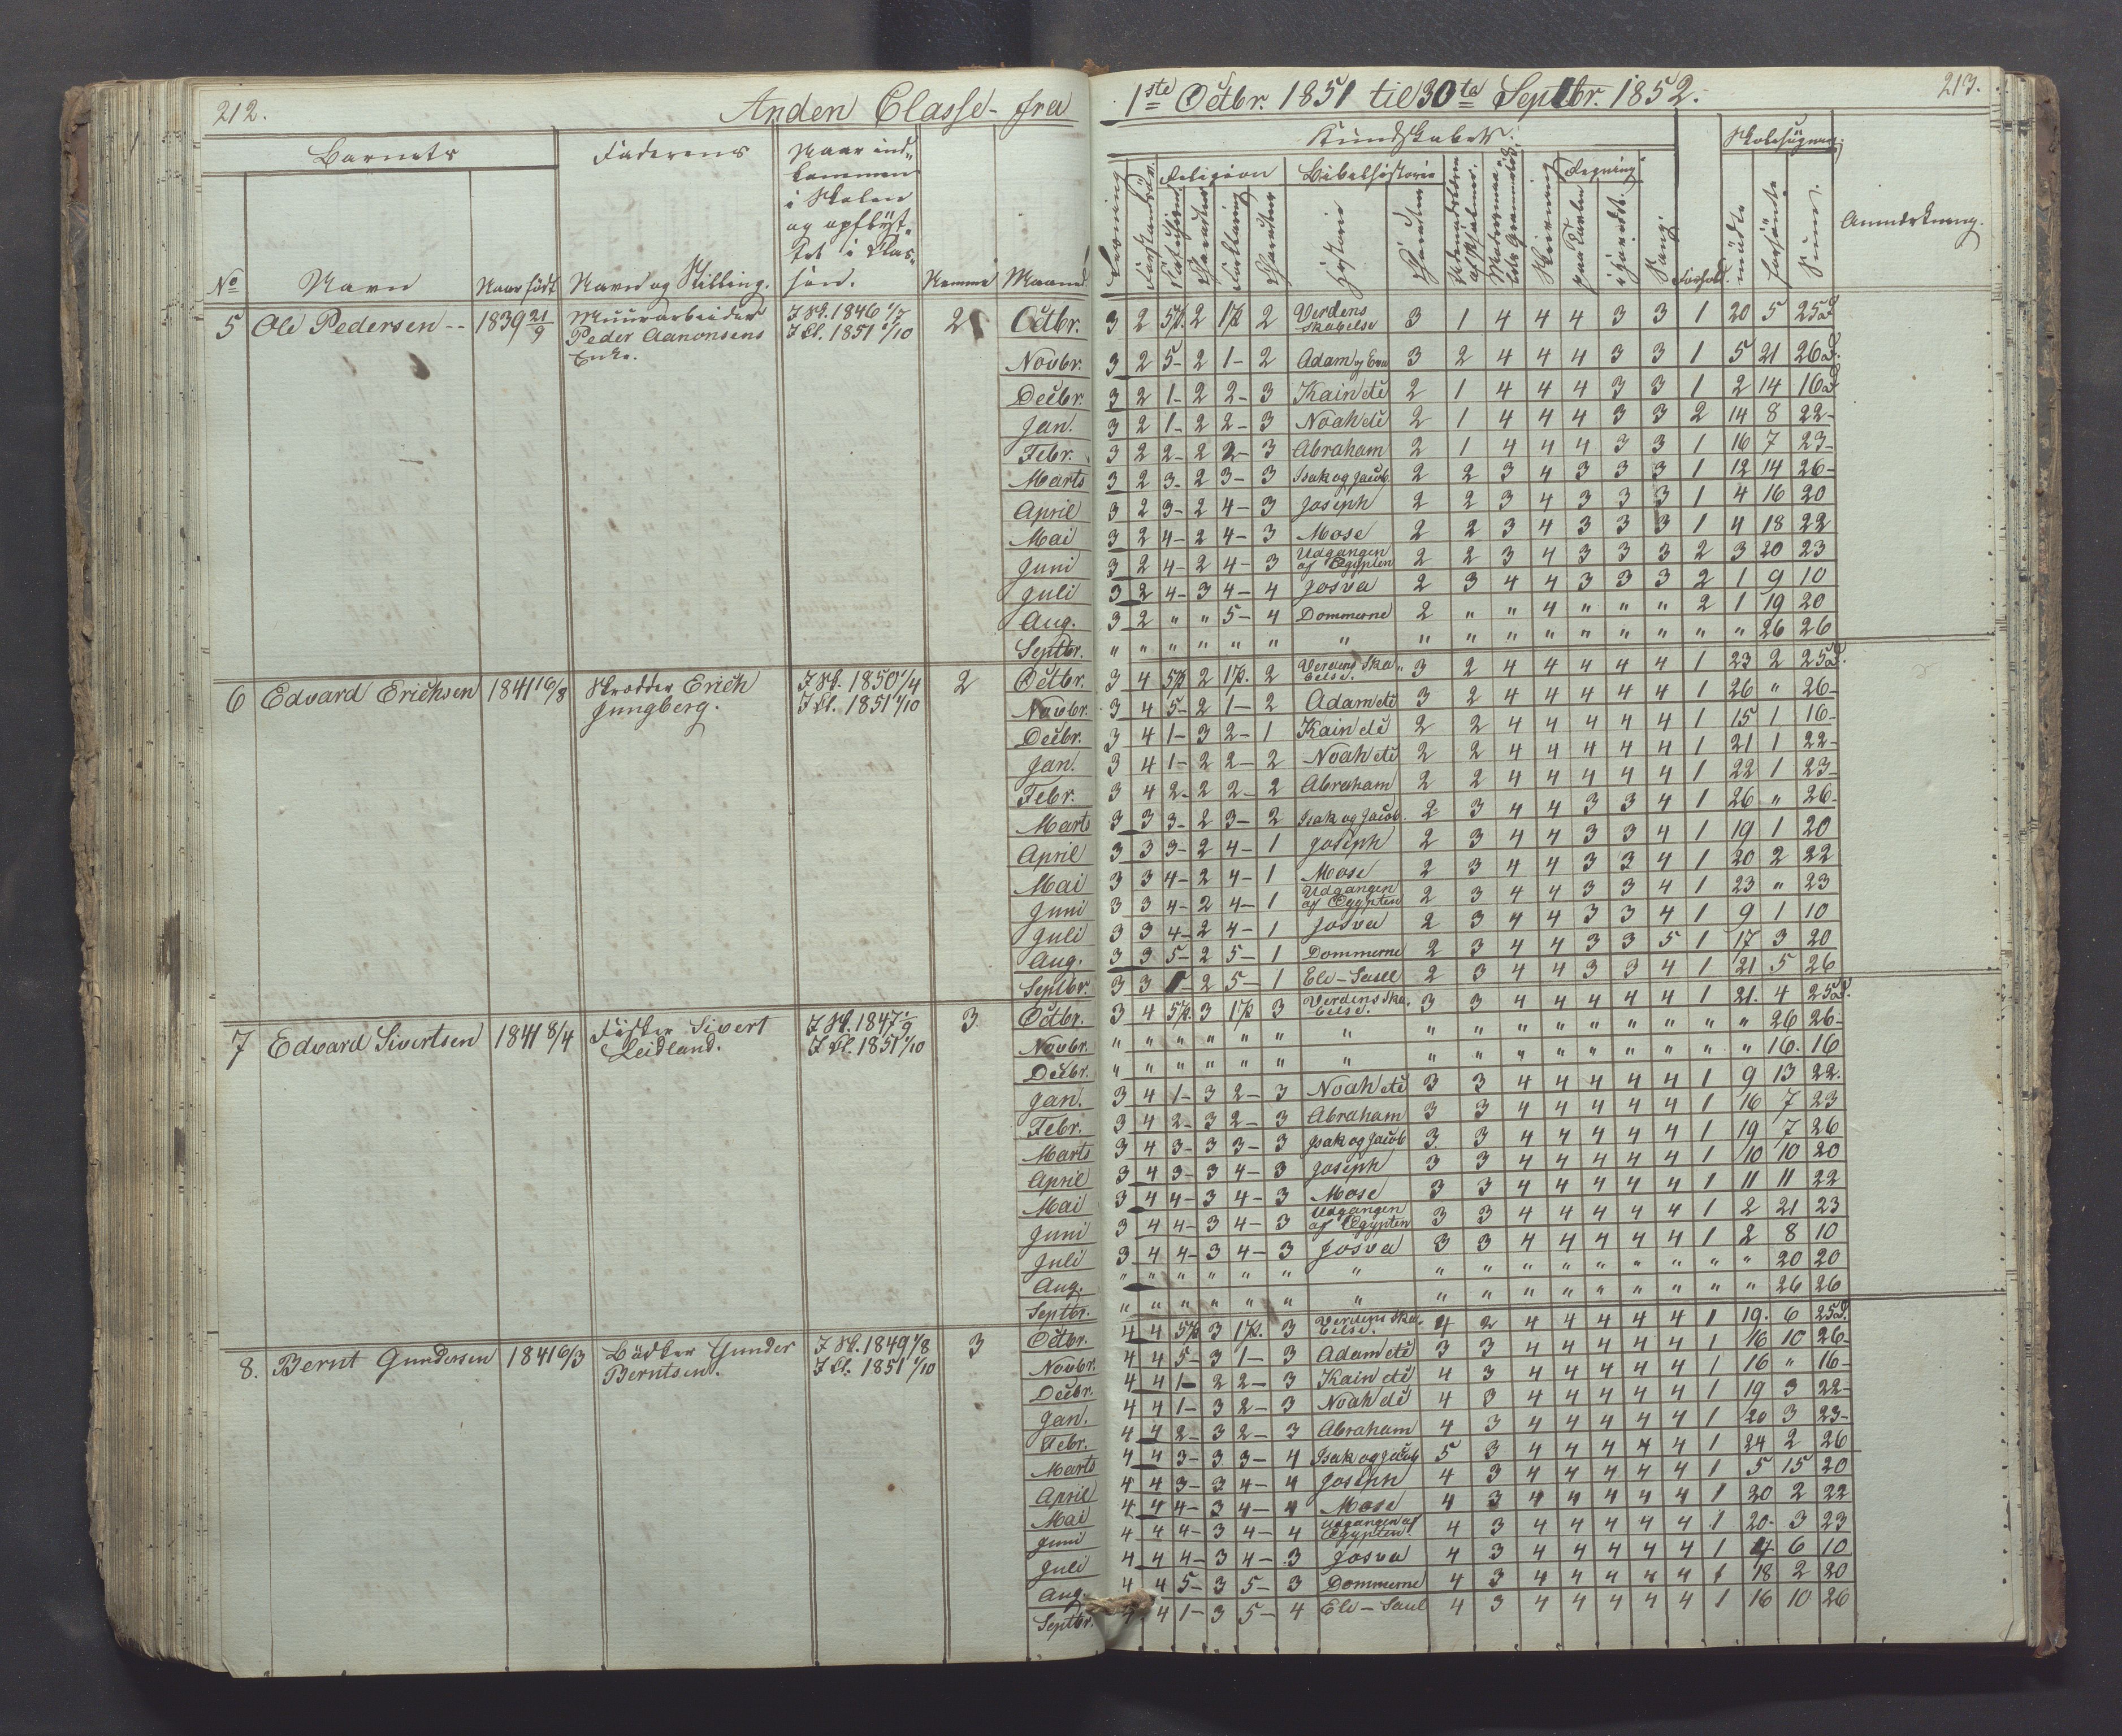 212.
Anden Classe fra
1ste Octbr. 1851 til 30te Septbr. 1852.
213.
Barnets
Faderens
Naar ind-
kommen
i Skolen
og opflyt-
tet i Klas-
sen.
No
Navn
Naar født
Navn og Stilling.
Nemme
Maaned
Kundskaber.
Skolesøgning.
Religion
Bibelhistorie
Regning
Læsning
Forklaring
Charakter
Historie
Charakter
Skrivning
paa Tavlen
i Hovedet
Sang
Forhold.
mødte
forsømte
Sum.
Anmærkning.
5 Ole Pedersen -- 1839 21/9 Muurarbeider Peder Aanonsens Enke. I Sk. 1846 1/7 I Cl. 1851 1/10 2
Octbr. 3 2 5p. 2 1p 2 Verdens Skabelse 3 1 4 4 4 3 3 1 20 5 25D
Novbr. 3 2 5- 2 1- 2 Adam og Eva 3 2 4 4 4 3 3 1 5 21 26D.
Decbr. 3 2 1- 2 2- 3 Kain etc 2 1 4 4 4 3 3 1 2 14 16D
Jan. 3 2 1- 2 2- 3 Noah etc 2 1 4 4 4 3 3 2 14 8 22-
Febr. 3 2 2- 2 2- 3 Abraham 2 1 4 4 4 3 3 1 16 7 23-
Marts 3 2 3- 2 3- 3 Isak og Jacob. 2 2 3 4 3 3 3 1 12 14 26-
April 3 2 3- 2 4- 3 Joseph 2 2 3 4 3 3 3 1 4 16 20
Mai 3 2 4- 2 4- 3 Mose 2 2 3 4 3 3 3 1 4 18 22
Juni 3 2 4- 2 4- 3 Udgangen af Ægypten 2 2 3 4 3 3 3 2 3 20 23
Juli 3 2 4- 3 4- 4 Josva 2 3 4 4 3 3 3 2 1 9 10
Aug. 3 2 " " 5- 4 Dommerne 2 " " 4 " " " 2 1 19 20
Septbr. " " " " " " " " " " " " " " " " 26 26
6 Edvard Erichsen 1841 16/8 Skrædder Erich Jungberg. I Sk. 1850 1/4 I Cl. 1851 1/10 2
Octbr. 3 4 5p 2 1p. 2 Verdens Skabelse. 3 2 4 4 4 4 4 1 23 2 25D.
Novbr. 3 4 5- 2 1- 2 Adam etc 3 2 4 4 4 4 4 1 26 " 26-
Decbr. 3 4 1- 3 2- 1 Kain etc 2 2 4 4 4 4 4 1 15 1 16-
Jan. 3 4 1- 2 2- 2 Noah etc 2 2 4 4 4 4 4 1 21 1 22-
Febr. 3 4 2- 2 2- 2 Abraham 2 2 4 4 4 4 4 1 22 1 23-
Marts 3 3 3- 2 3- 2 Isak og Jacob. 2 3 4 4 3 3 4 1 26 " 26-
April 3 3 3- 2 4- 1 Joseph 2 3 4 4 3 3 4 1 19 1 20
Mai 3 3 4- 2 4- 1 Mose 2 3 4 4 3 3 4 1 20 2 22
Juni 3 3 4- 2 4- 1 Udgangen af Ægypten 2 3 4 4 3 3 4 1 23 " 23
Juli 3 3 4- 2 4- 1 Josva 2 3 4 4 3 3 4 1 9 1 10
Aug. 3 3 5- 2 5- 1 Dommerne 2 3 4 4 3 3 5 1 17 3 20
Septbr. 3 3 1- 2 5- 1 Eli - Saul 2 3 4 4 3 3 4 1 21 5 26
7 Edvard Sivertsen 1841 8/4 Fisker Sivert Leidland. I Sk. 1847 1/9 I Cl. 1851 1/10 3
Octbr. 3 4 5p. 3 1p 3 Verdens Skabelse. 3 3 4 4 4 4 4 1 21. 4 25D.
Novbr. " " " " " " " " " " " " " " " " 26 26-
Decbr. " " " " " " " " " " " " " " " " 16. 16
Jan. 3 4 1- 3 2- 3 Noah etc 3 3 4 4 4 4 4 1 9 13 22.
Febr. 3 4 2- 3 2- 3 Abraham 3 3 4 4 4 4 4 1 16 7 23
Marts 3 4 3- 3 3- 3 Isak og Jacob 3 3 4 4 4 4 4 1 19 7 26
April 3 4 3- 3 4- 3 Joseph 3 3 4 4 4 4 4 1 10 10 20
Mai 3 4 4- 3 4- 3 Mose 3 3 4 4 4 4 4 1 11 11 22
Juni 3 4 4- 3 4- 3 Udgangen af Ægypten 3 3 4 4 4 4 4 1 2 21 23
Juli 3 4 4- 3 4- 3 Josva 3 3 4 4 4 4 4 1 2 8 10
Aug. " " " " " " " " " " " " " " " " 20 20
Septbr. " " " " " " " " " " " " " " " " 26 26
8. Bernt Gundersen 1841 6/3 Bødker Gunder Berntsen. I Sk. 1849 1/8 I Cl. 1851 1/10 3
Octbr. 4 4 5p 3 1p. 3 Verdens Skabelse. 4 2 4 4 4 4 4 1 19. 6 25D.
Novbr. 4 4 5- 3 1- 3 Adam etc 3 3 4 4 4 4 4 1 16 10 26-
Decbr. 4 4 1- 2 2- 3 Kain etc 4 3 4 4 4 4 4 1 16 " 16-
Jan. 4 4 1- 3 2- 3 Noah etc 4 3 4 4 4 4 4 1 19 3 22-
Febr. 4 4 2- 3 2- 3 Abraham 4 3 4 4 4 4 4 1 20 3 23-
Marts 4 4 3- 3 3- 4 Isak og Jacob 5 3 4 4 4 4 4 1 24 2 26
April 4 4 3- 3 4- 4 Joseph 4 3 4 4 4 4 4 1 5 15 20
Mai 4 4 4- 3 4- 4 Mose 4 3 4 4 4 4 4 1 20 2 22
Juni 4 4 4- 3 4- 4 Udgangen af Ægypten 4 3 4 4 4 4 4 1 20- 3 23
Juli 4 4 4- 3 4- 3 Josva 4 3 4 4 4 4 4 1 4 6 10
Aug. 4 4 5- 3 5- 3 Dommerne 4 3 4 4 4 4 4 1 18 2 20
Septbr. 4 4 1- 3 5- 4 Eli - Saul 4 3 4 4 4 4 4 1 16 10 26